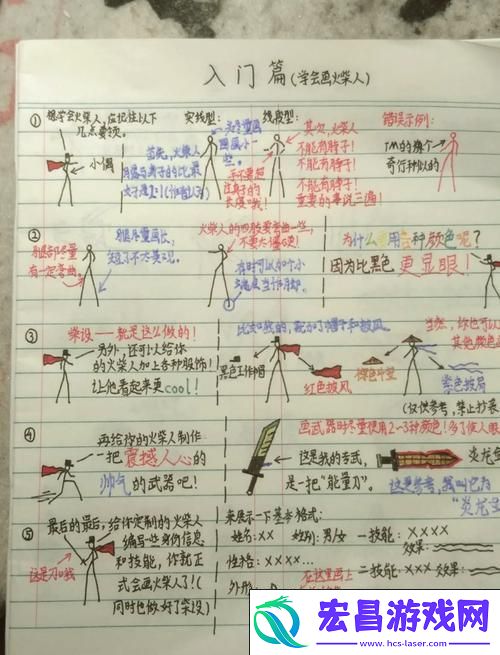 入门篇(学会画火柴人)
① 想学会火柴人,应记住以下
几点要领。
小偶
首先,火柴人
实线型:
线段型:
其次,火柴人
不能有脖子!
不能有脖子!
不能有脖子!
重要的事说三遍!
手不要超
过身子的
长度哦!
错误示例:
TM的像个
奇行种似的
②
腿部尽量
有一定弯曲。
腿尽量画长,
火柴人的四肢要弯曲一些,
不要太僵硬!
有时可以加个小
为什么要用各种颜色呢?
因为比黑色更显眼!
③ 柴设——就是这么做的!
另外,还可以给你
的火柴人加上各种服饰!
让他看起来更cool!
比如我的,就加了帽子和披风。
黑色工作帽
红色披风
当然,你也可以
其他颜色
棕色斗笠
紫色披肩
(仅供参考,禁止抄袭
④ 再给你的火柴人制作
一把震撼人心的
帅气的武器吧!
画武器时尽量使用2~3种颜色!多了使人眼
这是我的专武,
是一把“能量刀”。
炎龙剑
这是参考,我叫它为
“炎龙
⑤ 最后的最后,给你定制的火柴人
编写一些身份信息
和技能,你就正
式会画火柴人了!(
同时也做好了柴设)
这是刀哦
来展示一下基本格式:
姓名:×× 性别:男/女
性格:××××…
外形:
在这里画上
一技能:××××
效果:
二技能:×× 效果:
宏昌游戏网
www.hcs-laser.com